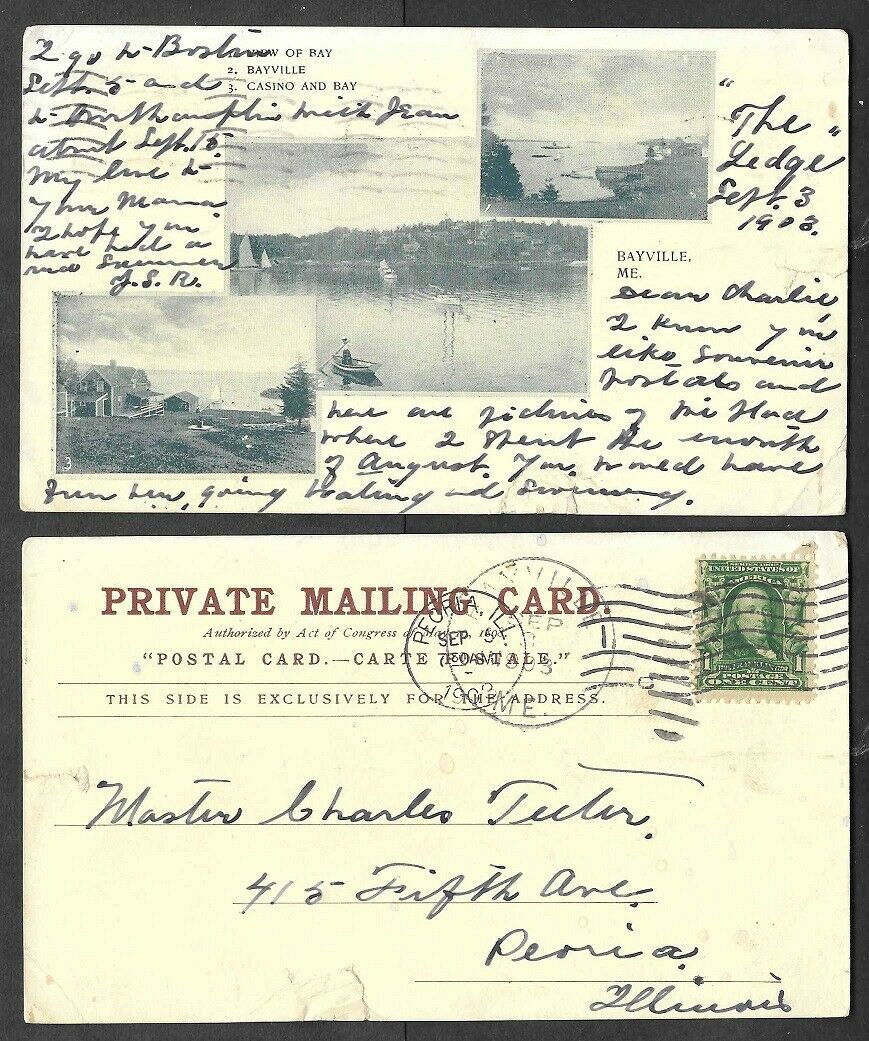 1. VIEW OF BAY
2. BAYVILLE
3. CASINO AND BAY
BAYVILLE,
ME.
1
2
3
"The
Ledge"
Sept. 3
1903.
Dear Charlie,
I know you
like souvenir
postals and
here are pictures of the place
where I spent the month
of August. You would have
fun here, going boating and swimming.
I go to Boston
Sept. 5 and
to Northampton with Jean
about Sept. 15.
My love to
your Mama.
I hope you
have had a
nice summer
J. S. R.
PRIVATE MAILING CARD.
Authorized by Act of Congress of May 19, 1898.
"POSTAL CARD.—CARTE POSTALE."
THIS SIDE IS EXCLUSIVELY FOR THE ADDRESS.
PEORIA, ILL.
SEP 9
7 30 AM
1903
BAYVILLE
SEP
ME.
SERIES 1902
UNITED STATES OF
AMERICA
1 POSTAGE 1
ONE CENT
Master Charles Teeter,
415 Fifth Ave.
Peoria
Illinois